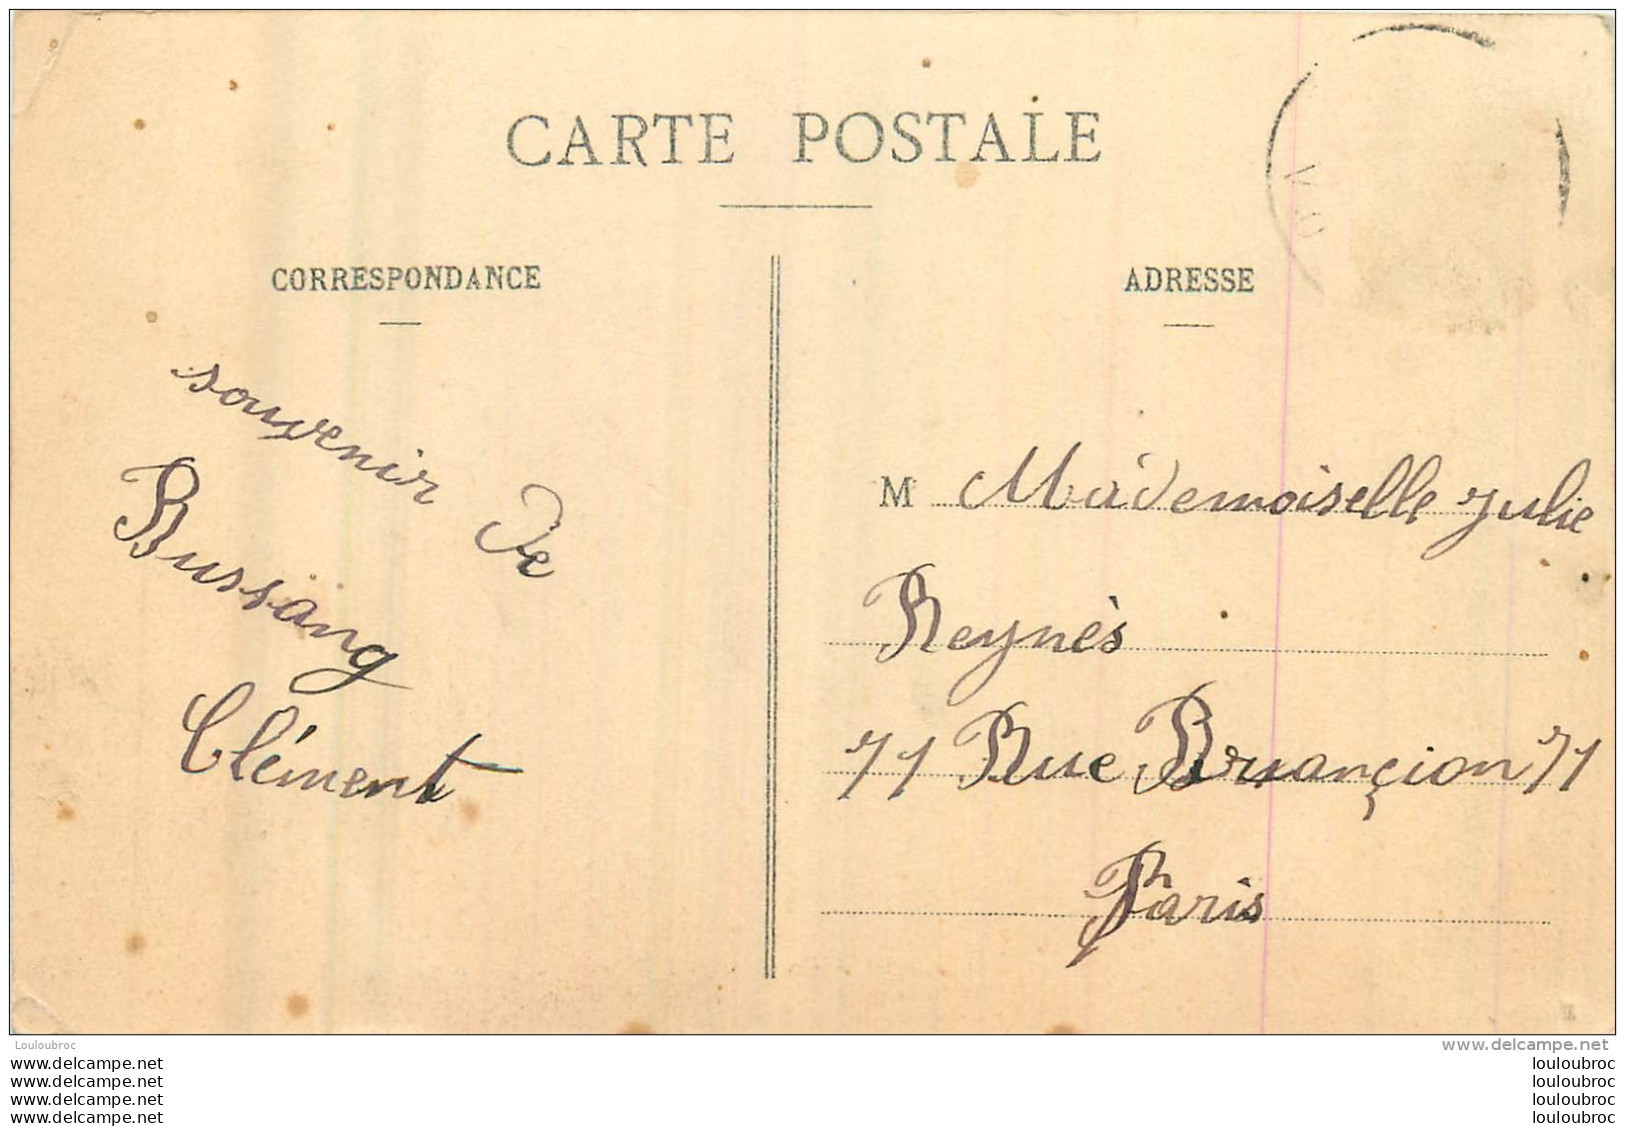 CARTE POSTALE
CORRESPONDANCE
souvenir de
Bussang
Clément
ADRESSE
M Mademoiselle Julie
Reynès
71 Rue Bruançion 71
Paris
Louloubroc
www.delcampe.net
www.delcampe.net
www.delcampe.net
www.delcampe.net
www.delcampe.net
louloubroc
louloubroc
louloubroc
louloubroc